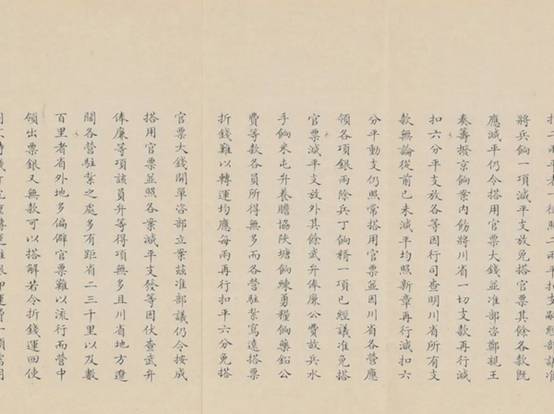 將兵餉一項減平支放免搭官票其餘各款既
應減平仍令搭用官票大錢並准部咨鄭親王
奏籌撥京餉案內飭將川省一切支款再行減
扣六分平支放各等因行司查明川省所有支
款無論從前已未減平均照新章再行減扣六
分平動支仍照常搭用官票並因川省各營應
領各項銀兩除兵丁餉糈一項已經議准免搭
官票減平支放外其餘武弁俸廉公費故兵水
手餉米屯弁養贍協陝塘餉練勇糧餉藥鉛公
費等款各員所得無多而各營駐紮寫遠搭票
折錢難以轉運均應每兩再行扣平六分免搭
官票大錢開單咨部立案茲准部議仍令按成
搭用官票並照各案減平支發等因伏查武弁
俸廉等項該員弁等得項無多且川省地方遼
闊各營駐紮之處多有距省二三千里以及數
百里者省外地多偏僻官票難以流行而營中
領出票銀又無款可以搭解若令折錢運回使